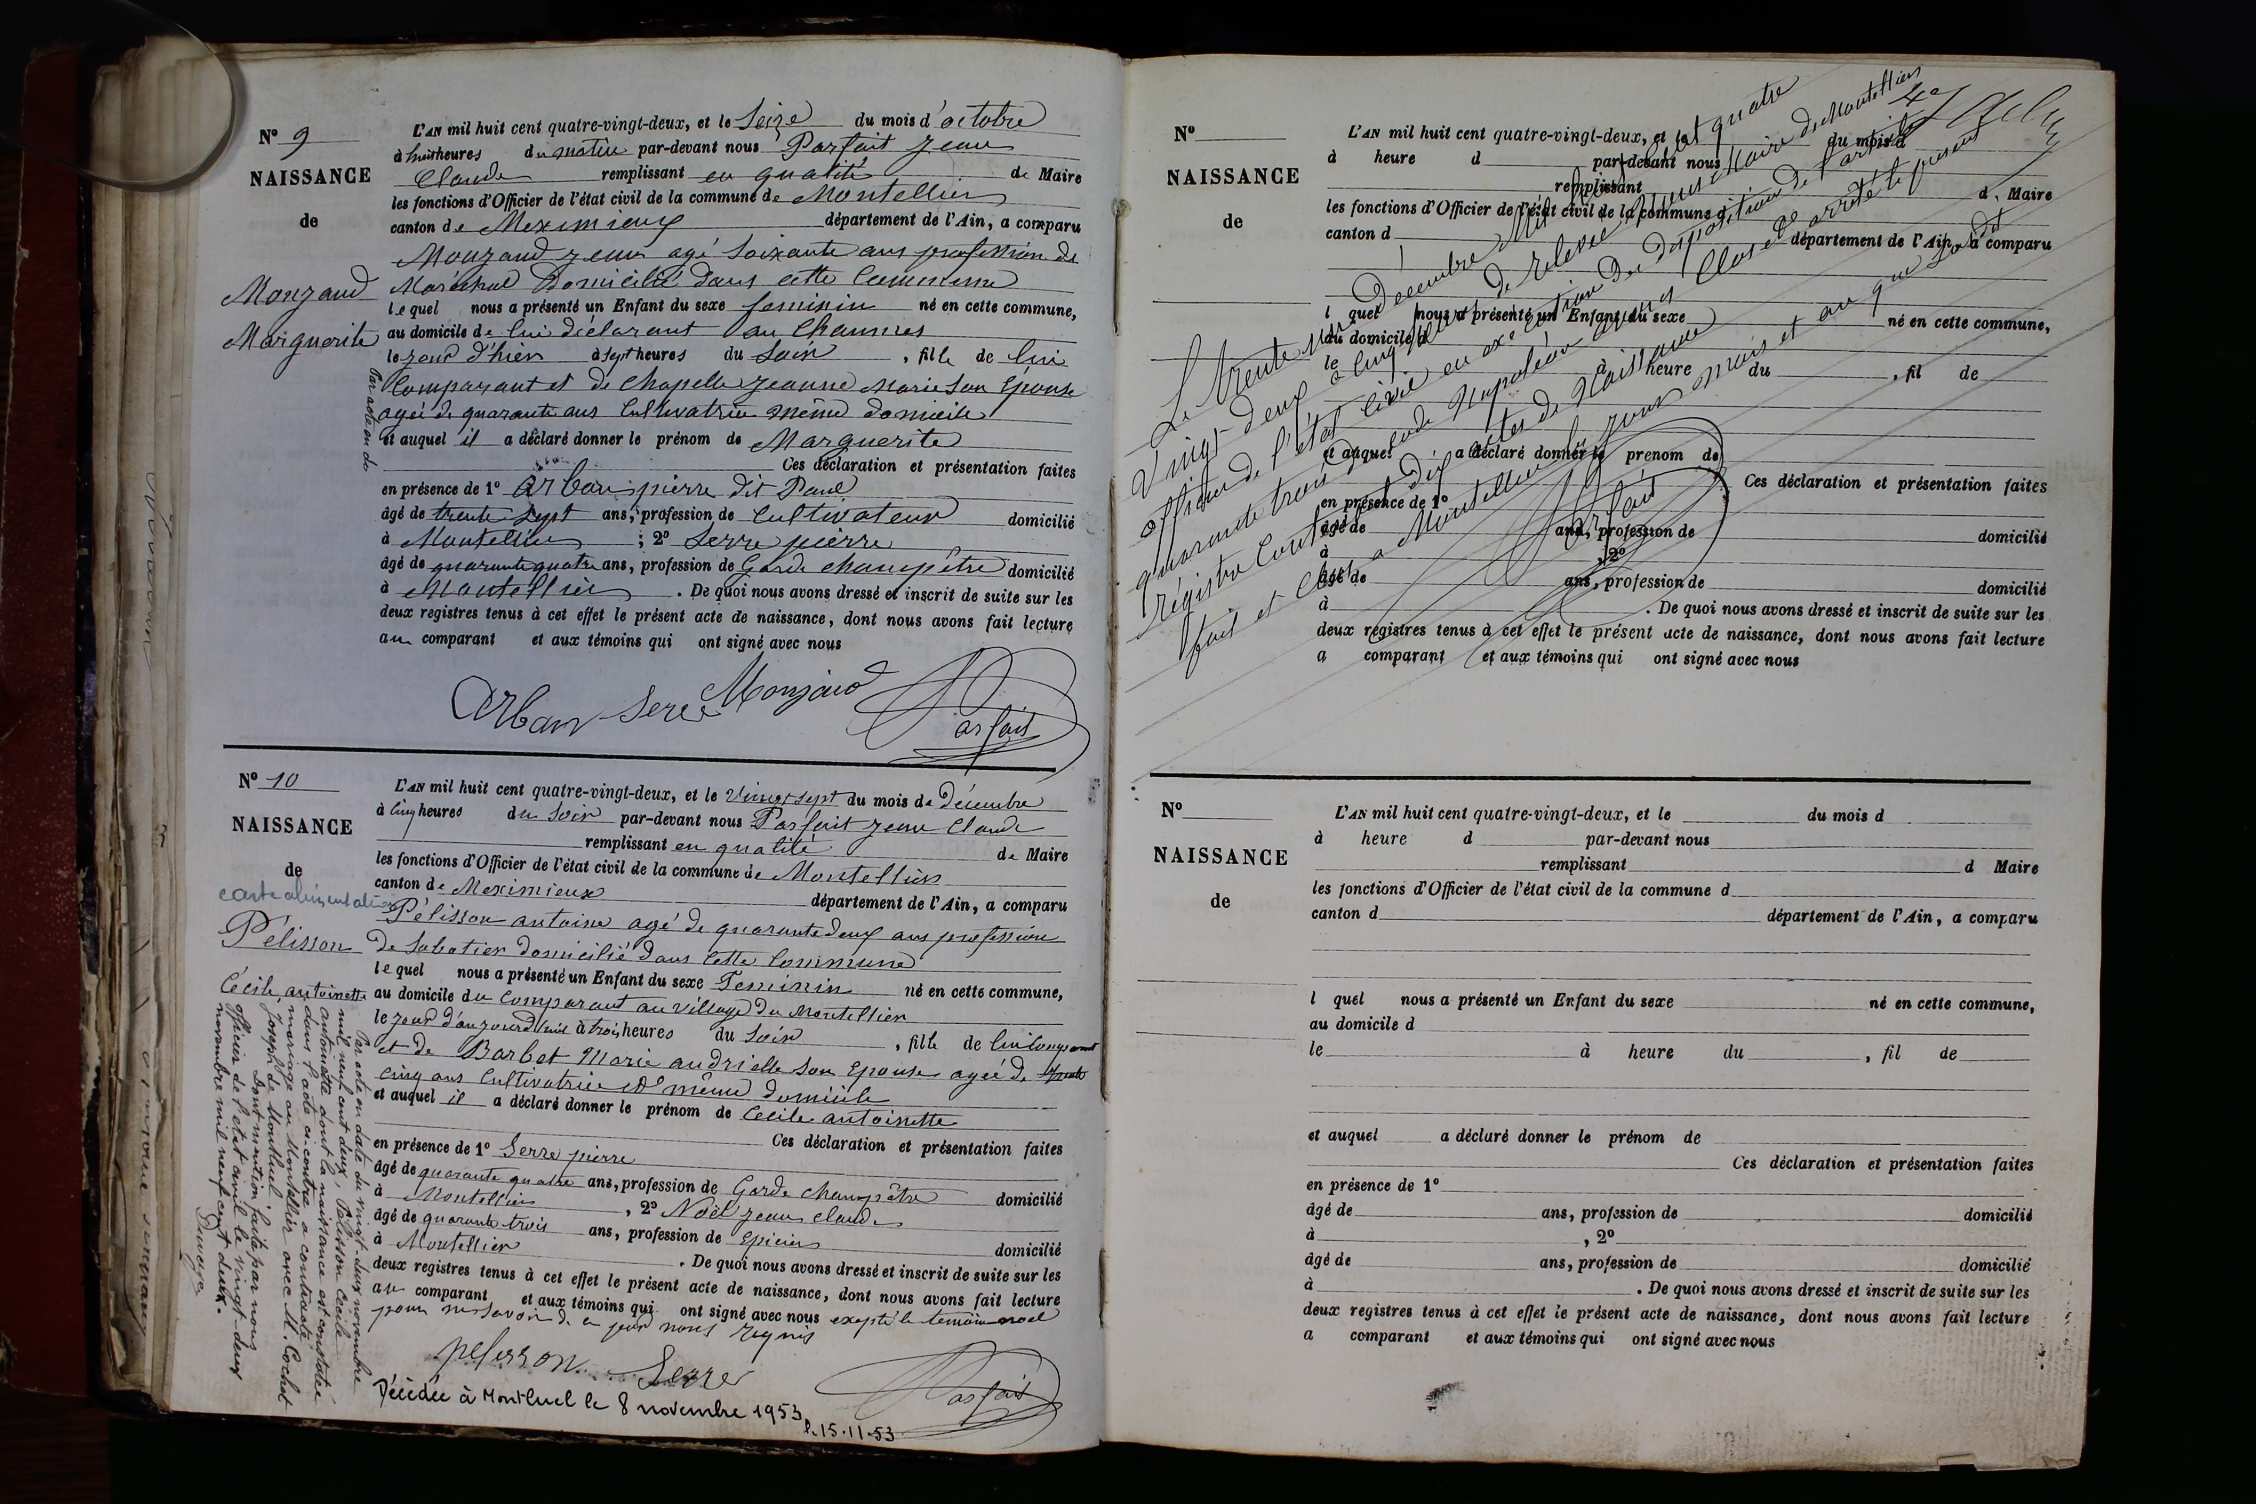 N° 9
NAISSANCE
de
Monzand
Marguerite
L'AN mil huit cent quatre-vingt-deux, et le Seize du mois d'octobre
à huit heures du matin par-devant nous Parfait Jean
Claude remplissant en qualité de Maire
les fonctions d'Officier de l'état civil de la commune de Montellier
canton de Meximieux département de l'Ain, a comparu
Monzand Jean agé soixante ans profession de
Maréchal Domicilié dans cette Commune
lequel nous a présenté un Enfant du sexe feminin né en cette commune,
au domicile de lui déclarant au Chaumes
le jour d'hier à sept heures du Soir, fille de lui
Comparant et de Chapelle Jeanne Marie Son Épouse
agée de quarante ans Cultivatrice même domicile
et auquel il a déclaré donner le prénom de Marguerite
Ces déclaration et présentation faites
en présence de 1° Arban pierre dit Paul
âgé de trente sept ans, profession de Cultivateur domicilié
à Montellier ; 2° Serre pierre
âgé de quarante quatre ans, profession de Garde champêtre domicilié
à Montellier. De quoi nous avons dressé et inscrit de suite sur les
deux registres tenus à cet effet le présent acte de naissance, dont nous avons fait lecture
au comparant et aux témoins qui ont signé avec nous
Par acte en da
Arban Serre Monzand Parfait
N° 10
NAISSANCE
de
carte alimentation
Pélisson
Cécile antoinette
L'AN mil huit cent quatre-vingt-deux, et le Vingt sept du mois de Décembre
à Cinq heures du Soir par-devant nous Parfait Jean Claude
remplissant en qualité de Maire
les fonctions d'Officier de l'état civil de la commune de Montellier
canton de Meximieux département de l'Ain, a comparu
Pélisson antoine agé de quarante deux ans profession
de Sabotier domicilié dans cette Commune
lequel nous a présenté un Enfant du sexe Feminin né en cette commune,
au domicile du Comparant au village du Montellier
le jour d'aujourd'hui à trois heures du Soir, fille de lui Comparant
et de Barbet Marie audrielle son Epouse agée de trente
cinq ans Cultivatrice même domicile
et auquel il a déclaré donner le prénom de Cecile antoinette
Ces déclaration et présentation faites
en présence de 1° Serre pierre
âgé de quarante quatre ans, profession de Garde champêtre domicilié
à Montellier, 2° Noël Jean Claude
âgé de quarante trois ans, profession de Epicier domicilié
à Montellier. De quoi nous avons dressé et inscrit de suite sur les
deux registres tenus à cet effet le présent acte de naissance, dont nous avons fait lecture
au comparant et aux témoins qui ont signé avec nous excepté le temoin noël
pour ne savoir de ce jour nous requis
Pelisson Serre Parfait
Décédée à Montluel le 8 novembre 1953
le 15.11.53
Par acte en date du vingt-deux novembre
mil neuf cent deux, Pélisson Cécile
antoinette dont la naissance est constatée
dans l'acte ci-contre a contracté
mariage au Montellier avec M. Cochet
Joseph de Montluel.
Dont mention faite par nous
officier de l'état civil le vingt-deux
novembre mil neuf cent deux.
N°
NAISSANCE
de
L'AN mil huit cent quatre-vingt-deux, et le du mois d
à heure d par-devant nous
remplissant d. Maire
les fonctions d'Officier de l'état civil de la commune d
canton d département de l'Ain, a comparu
l quel nous a présenté un Enfant du sexe né en cette commune,
au domicile d
le à heure du, fil de
et auquel a déclaré donner le prenom de
Ces déclaration et présentation faites
en présence de 1°
âgé de ans, profession de domicilié
à, 2°
âgé de ans, profession de domicilié
à. De quoi nous avons dressé et inscrit de suite sur les
deux registres tenus à cet effet le présent acte de naissance, dont nous avons fait lecture
a comparant et aux témoins qui ont signé avec nous
Le trente un Décembre Mil huit cent quatre
Vingt deux à Cinq heures de relevée Nous Maire du Montellier
officier de l'état Civil en exécution Des disposition de l'article
quarante trois du Code Napoléon avons Clos et arrêté le présent
régistre Contenant dix actes de Naissance
fait et Clos a Montellier les jour mois et an que susdit
Parfait
N°
NAISSANCE
de
L'AN mil huit cent quatre-vingt-deux, et le du mois d
à heure d par-devant nous
remplissant d Maire
les fonctions d'Officier de l'état civil de la commune d
canton d département de l'Ain, a comparu
l quel nous a présenté un Enfant du sexe né en cette commune,
au domicile d
le à heure du, fil de
et auquel a déclaré donner le prénom de
Ces déclaration et présentation faites
en présence de 1°
âgé de ans, profession de domicilié
à, 2°
âgé de ans, profession de domicilié
à. De quoi nous avons dressé et inscrit de suite sur les
deux registres tenus à cet effet le présent acte de naissance, dont nous avons fait lecture
a comparant et aux témoins qui ont signé avec nous